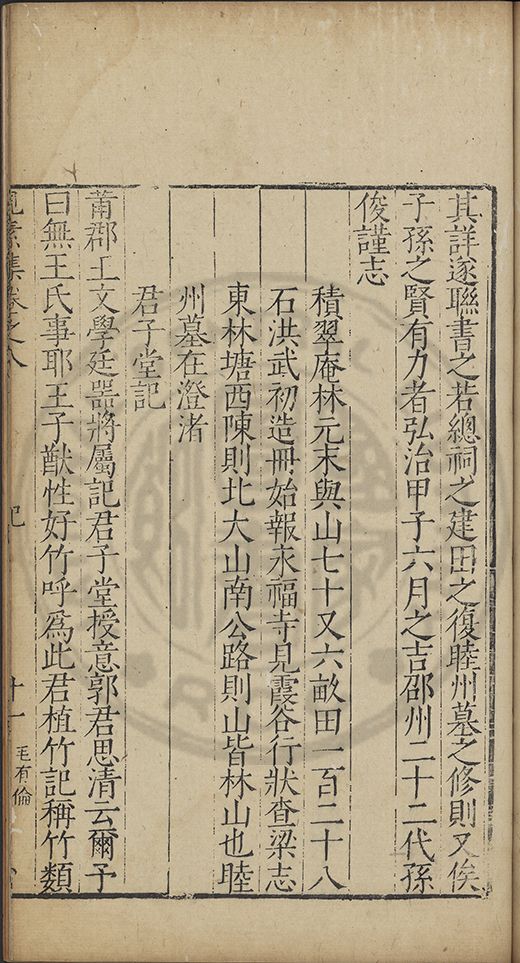 其詳遂聯書之若總祠之建田之復睦州墓之修則又俟
子孫之賢有力者弘治甲子六月之吉邵州二十二代孫
俊謹志
積翠庵林元末與山七十又六畝田一百二十八
石洪武初造冊始報永福寺見霞谷行狀查梁志
東林塘西陳則北大山南公路則山皆林山也睦
州墓在澄渚
君子堂記
莆郡王文學廷器將屬記君子堂授意郭君思清云爾予
曰無王氏事耶王子猷性好竹呼為此君植竹記稱竹類
見素集卷之八
記
十一
毛有倫